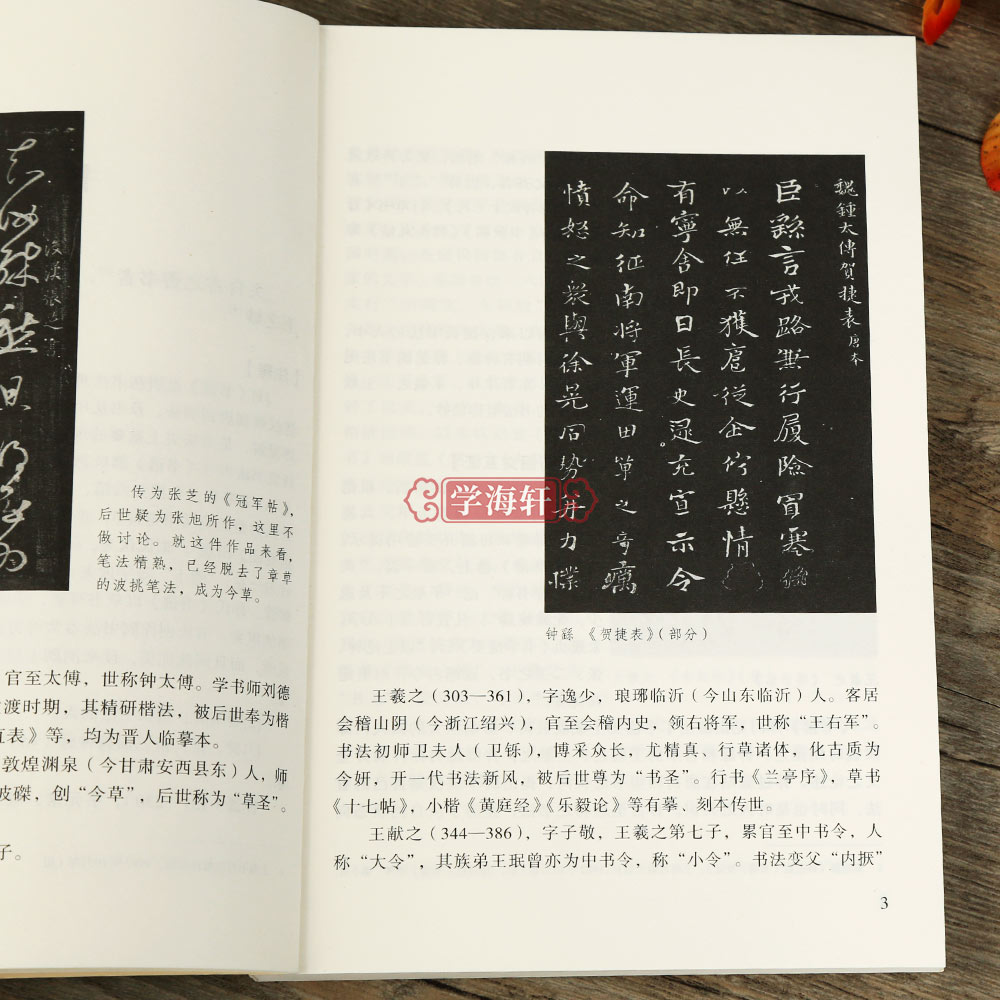 后汉张芝书
传为张芝的《冠军帖》，
后世疑为张旭所作，这里不
做讨论。就这件作品来看，
笔法精熟，已经脱去了章草
的波挑笔法，成为今草。
官至太傅，世称钟太傅。学书师刘德
渡时期，其精研楷法，被后世奉为楷
表》等，均为晋人临摹本。
敦煌渊泉（今甘肃安西县东）人，师
波磔，创“今草”，后世称为“草圣”。
子。
魏鍾太傅賀捷表 唐本
臣繇言戎路兼行履險冒寒
以無任不獲扈從企佇懸情
有寧舍即日長史逯充宣示令
命知征南將軍運田單之奇厲
憤怒之眾與徐晃同勢并力撲
学海轩
钟繇 《贺捷表》（部分）
王羲之（303—361），字逸少，琅琊临沂（今山东临沂）人。客居
会稽山阴（今浙江绍兴），官至会稽内史，领右将军，世称“王右军”。
书法初师卫夫人（卫铄），博采众长，尤精真、行草诸体，化古质为
今妍，开一代书法新风，被后世尊为“书圣”。行书《兰亭序》，草书
《十七帖》，小楷《黄庭经》《乐毅论》等有摹、刻本传世。
王献之（344—386），字子敬，王羲之第七子，累官至中书令，人
称“大令”，其族弟王珉曾亦为中书令，称“小令”。书法变父“内擫”
3